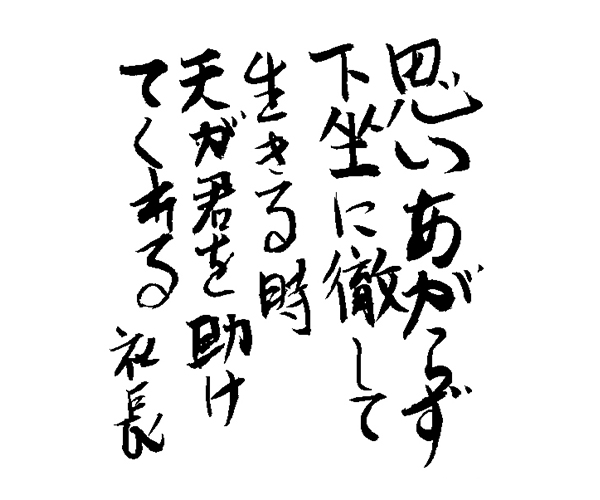 思いあがらず
下坐に徹して
生きる時
天が君を助け
てくれる 社長